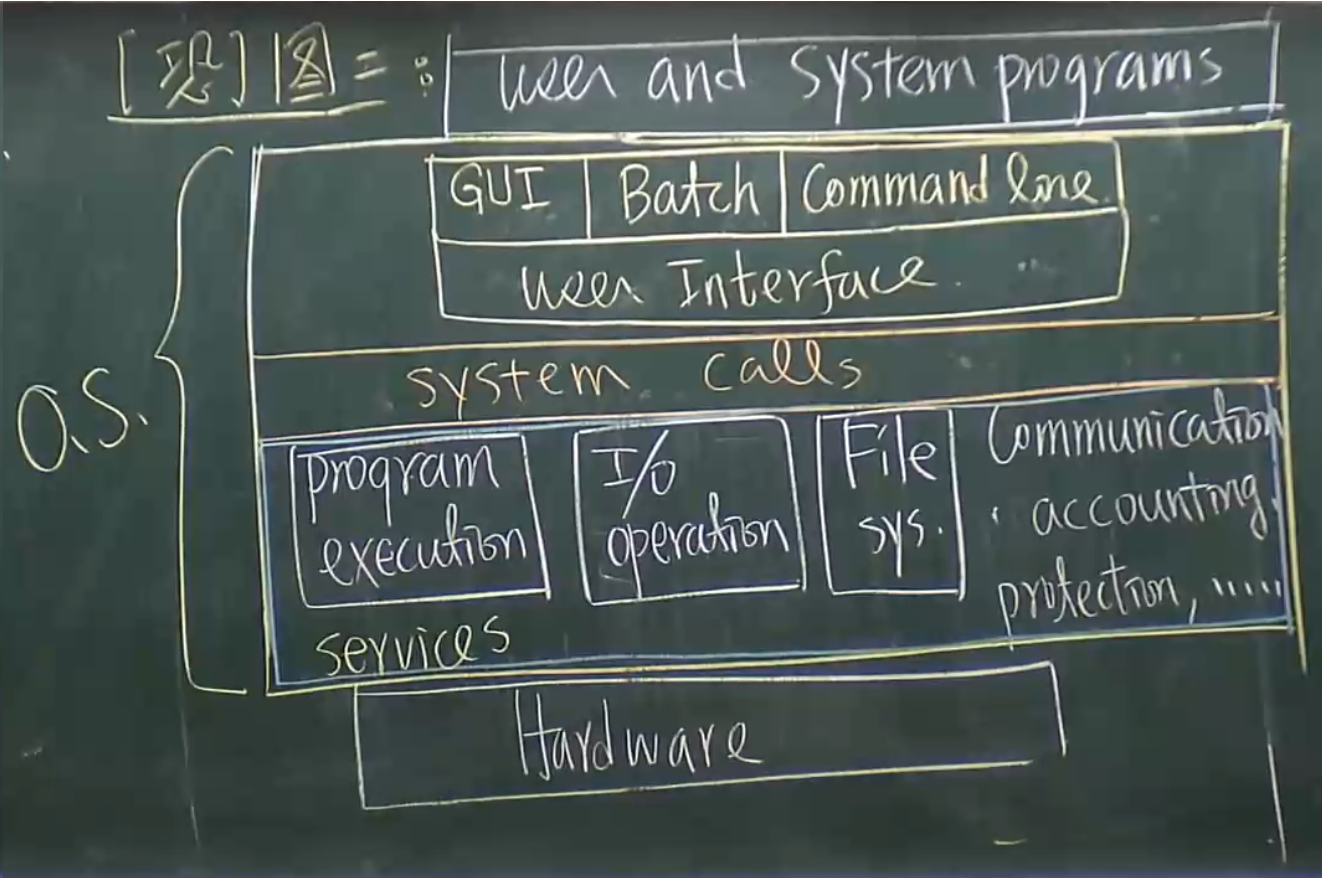 [恐]圖二:
user and system programs
GUI Batch Command line
user Interface.
system calls
O.S.
program execution
I/O operation
File sys.
Communication
、accounting,
protection, ......
services
Hardware